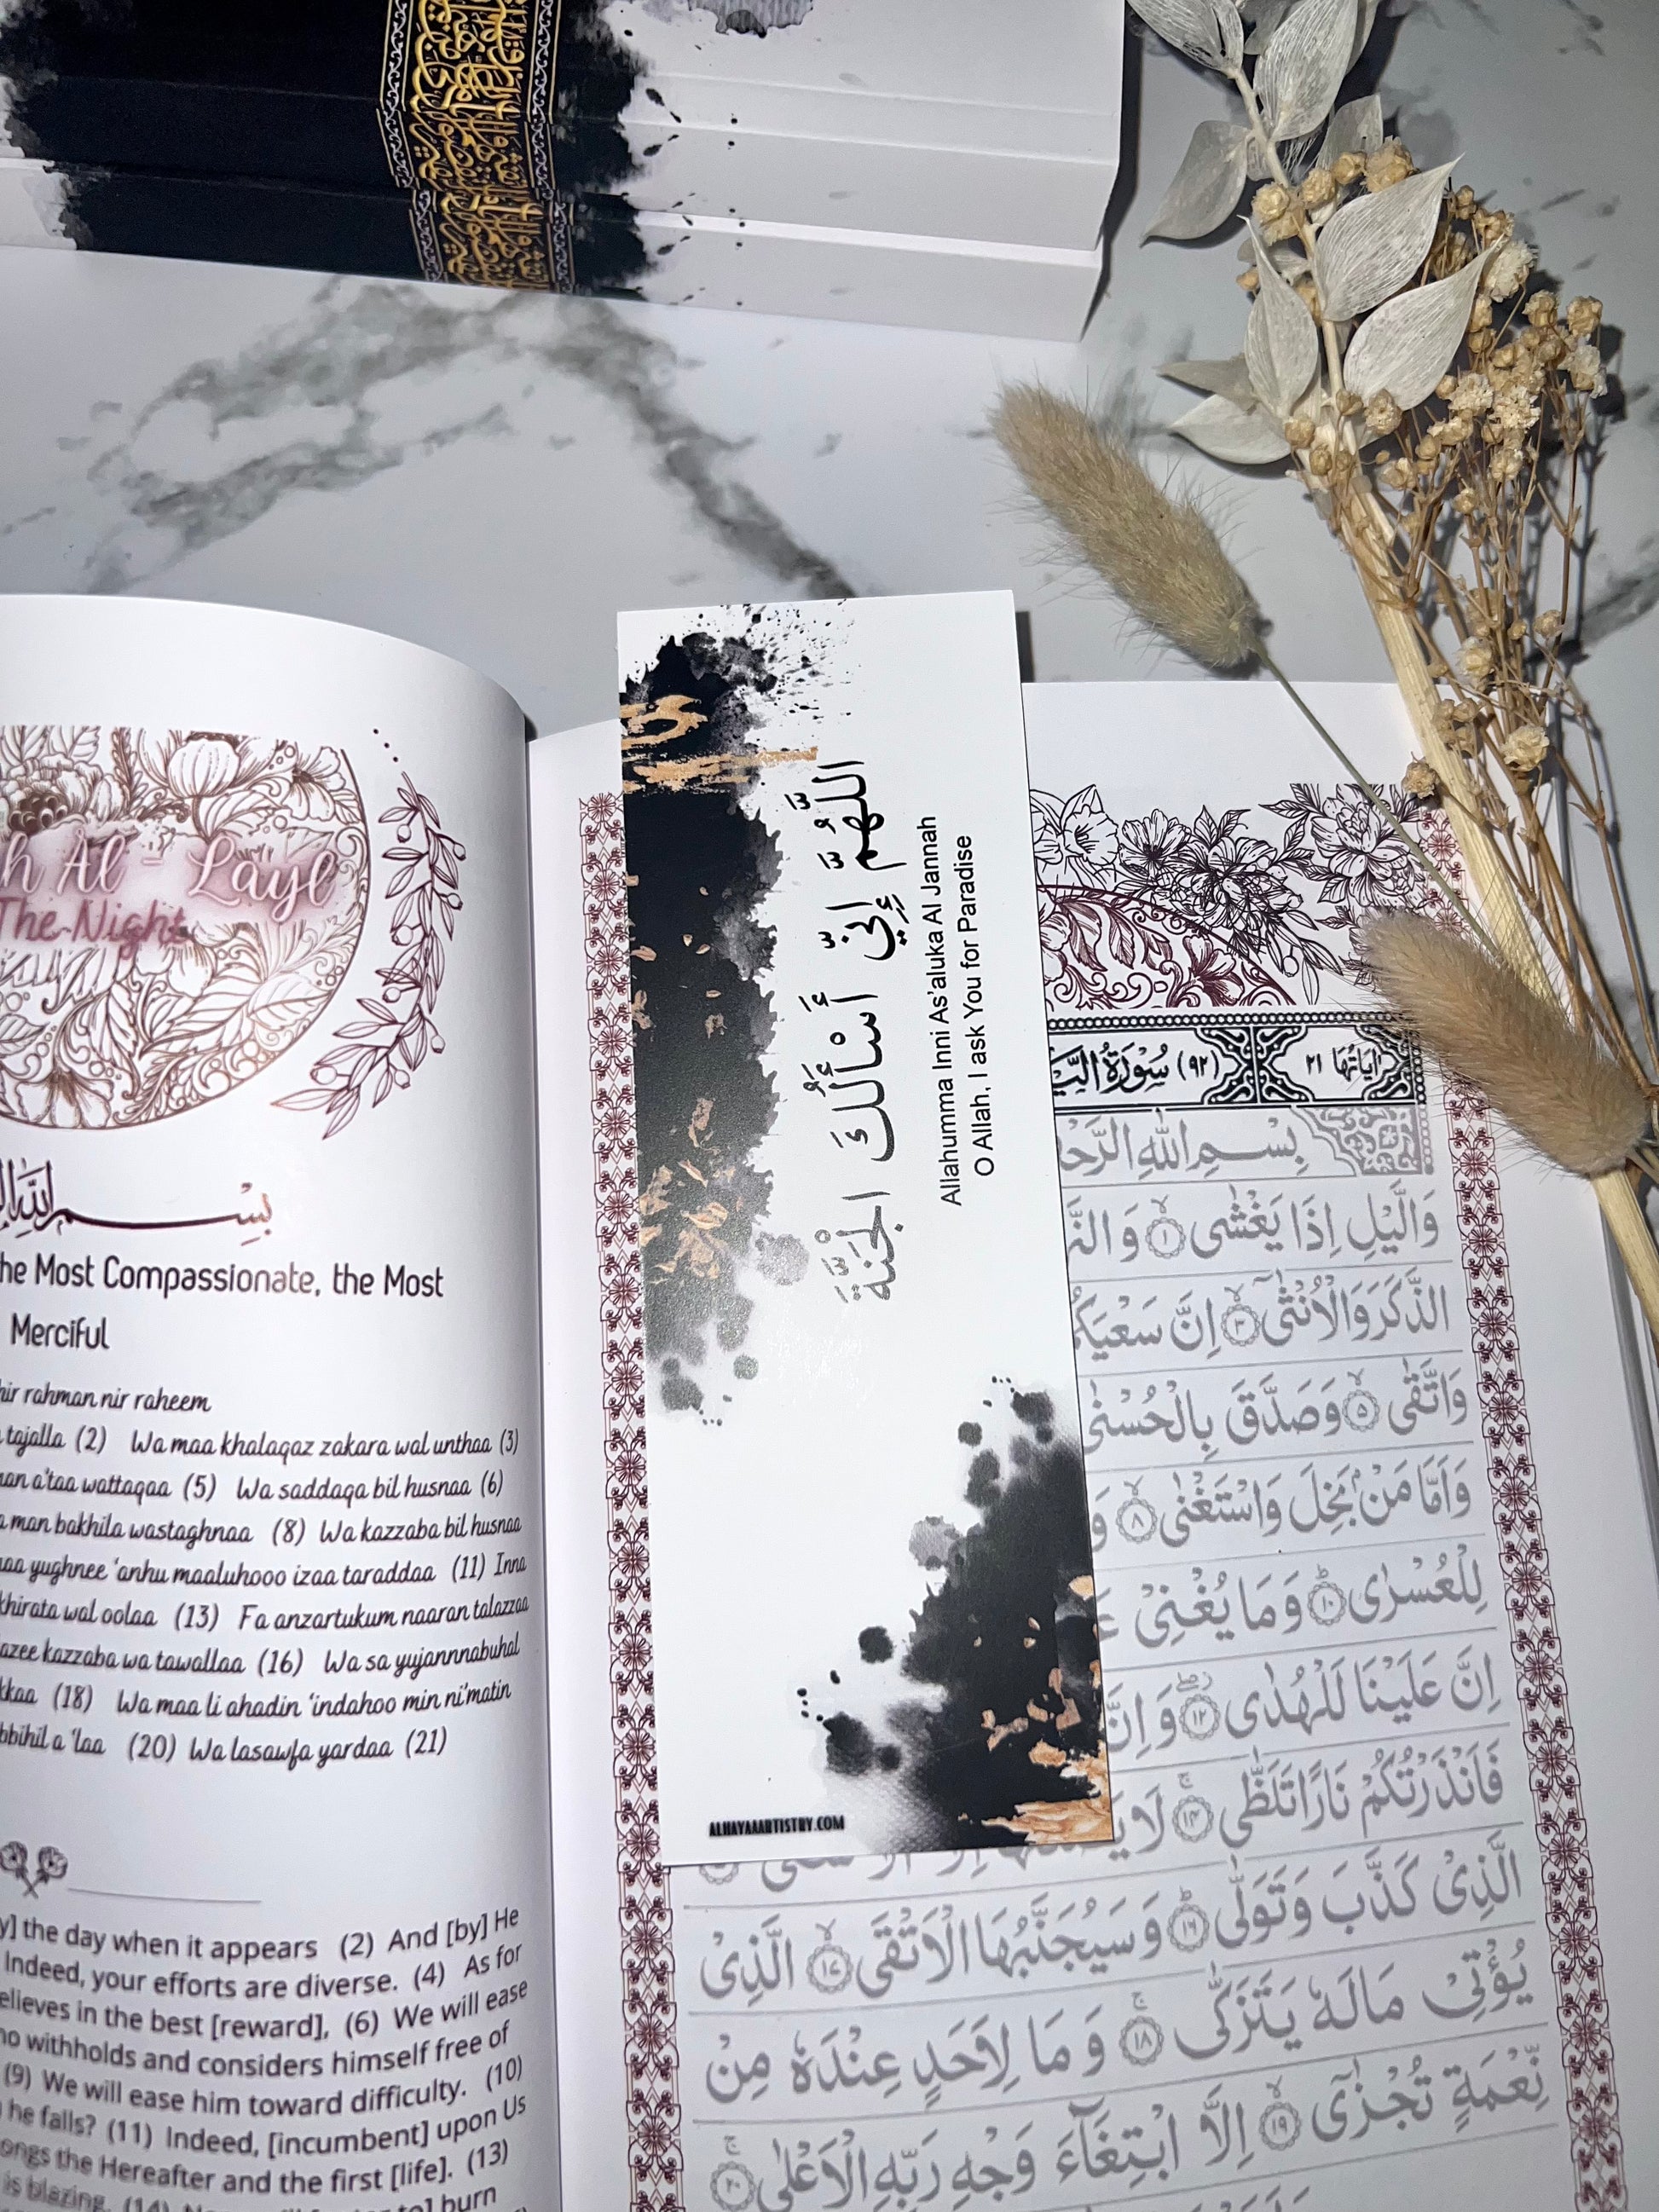 h Al - Layl
The Night
بِسْمِ اللهِ
he Most Compassionate, the Most
Merciful
hir rahman nir raheem
tajalla (2) Wa maa khalaqaz zakara wal unthaa (3)
an a'taa wattaqaa (5) Wa saddaqa bil husnaa (6)
man bakhila wastaghnaa (8) Wa kazzaba bil husnaa
aa yughnee 'anhu maaluhooo izaa taraddaa (11) Inna
khirata wal oolaa (13) Fa anzartukum naaran talazzaa
azee kazzaba wa tawallaa (16) Wa sa yujannnabuhal
kkaa (18) Wa maa li ahadin 'indahoo min ni'matin
bbihil a 'laa (20) Wa lasawfa yardaa (21)
y] the day when it appears (2) And [by] He
Indeed, your efforts are diverse. (4) As for
elieves in the best [reward], (6) We will ease
ho withholds and considers himself free of
(9) We will ease him toward difficulty. (10)
he falls? (11) Indeed, [incumbent] upon Us
ongs the Hereafter and the first [life]. (13)
is blazing. (14)
to] burn
اللَّهُمَّ إِنِّي أَسْأَلُكَ الْجَنَّةَ
Allahumma Inni As'aluka Al Jannah
O Allah, I ask You for Paradise
ALHAYAAARTISTRY.COM
اٰيَاتُهَا ٢١ (٩٢) سُوْرَةُ
بِسْمِ اللهِ الرَّحْ
وَالَّيْلِ اِذَا يَغْشٰى ١ وَالنَّ
الذَّكَرَ وَالْاُنْثٰى ٣ اِنَّ سَعْيَكُ
وَاتَّقٰى ٥ وَصَدَّقَ بِالْحُسْنٰى
وَاَمَّا مَنْ بَخِلَ وَاسْتَغْنٰى ٨ وَ
لِلْعُسْرٰى ١٠ وَمَا يُغْنِيْ عَ
اِنَّ عَلَيْنَا لَلْهُدٰى ١٢ وَاِنَّ
فَاَنْذَرْتُكُمْ نَارًا تَلَظّٰى ١٤ لَا يَ
الَّذِيْ كَذَّبَ وَتَوَلّٰى ١٦ وَسَيُجَنَّبُهَا الْاَتْقَى ١٧ الَّذِيْ
يُؤْتِيْ مَالَهٗ يَتَزَكّٰى ١٨ وَمَا لِاَحَدٍ عِنْدَهٗ مِنْ
نِّعْمَةٍ تُجْزٰٓى ١٩ اِلَّا ابْتِغَآءَ وَجْهِ رَبِّهِ الْاَعْلٰى ٢٠